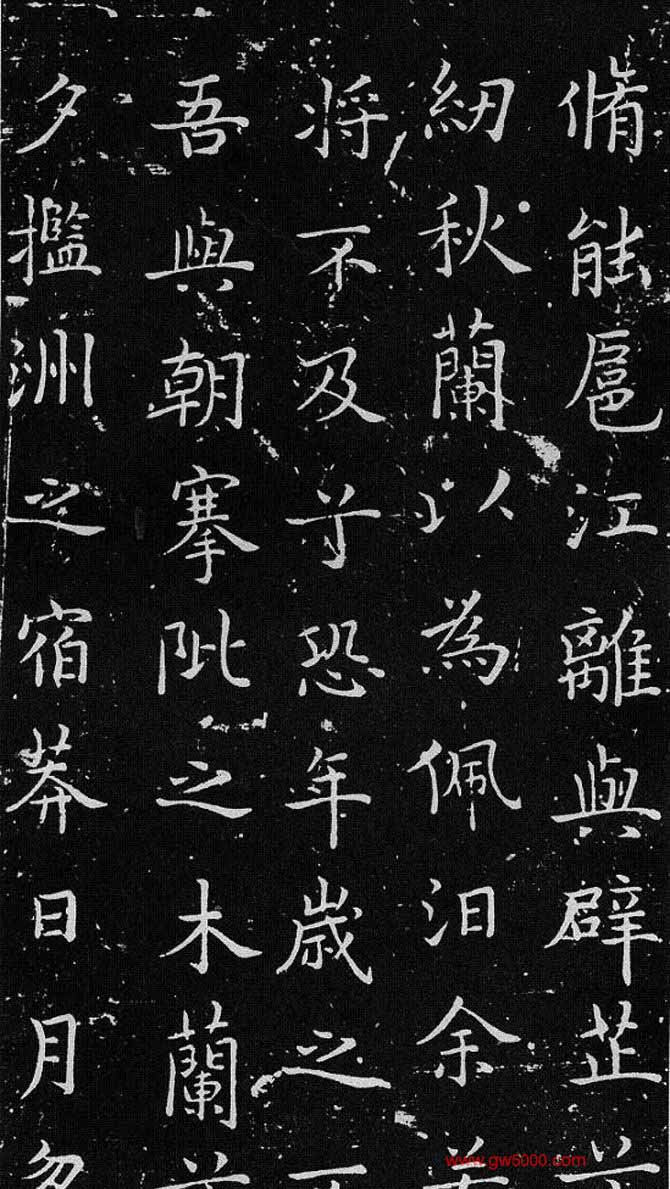 脩能扈江離與辟芷
紉秋蘭以為佩汨余
将不及兮恐年歲之
吾與朝搴阰之木蘭
夕㩜洲之宿莽日月
www.gw5000.com